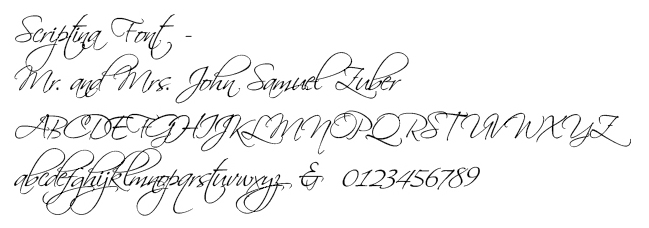 Scriptina Font -
Mr. and Mrs. John Samuel Zuber
ABCDEFGHIJKLMNOPQRSTUVWXYZ
abcdefghijklmnopqrstuvwxyz & 0123456789